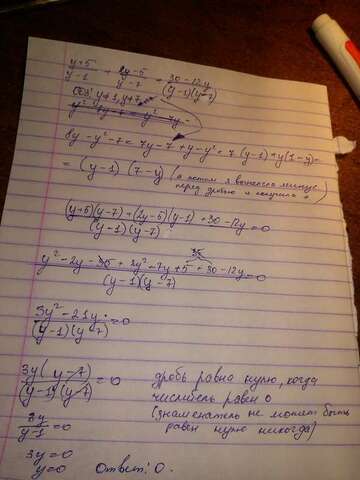 y+5/y-1 + 2y-5/y-7 = 30-12y/(y-1)(y-7)
ОДЗ: y≠1, y≠7
8y - y² - 7 = 7y - 7 + y - y² = 7(y-1) + y(1-y) =
= (y-1)(7-y) (а потом я вынесла минус
перед дробью и получила +
(y+5)(y-7) + (2y-5)(y-1) + 30-12y/(y-1)(y-7) = 0
35
y² - 2y - 35 + 2y² - 7y + 5 + 30 - 12y/(y-1)(y-7) = 0
3y² - 21y/(y-1)(y-7) = 0
3y(y-7)/(y-1)(y-7) = 0 дробь равна нулю, когда
числитель равен 0
3y/y-1 = 0 (знаменатель не может быть
равен нулю никогда)
3y = 0
y = 0 Ответ: 0.